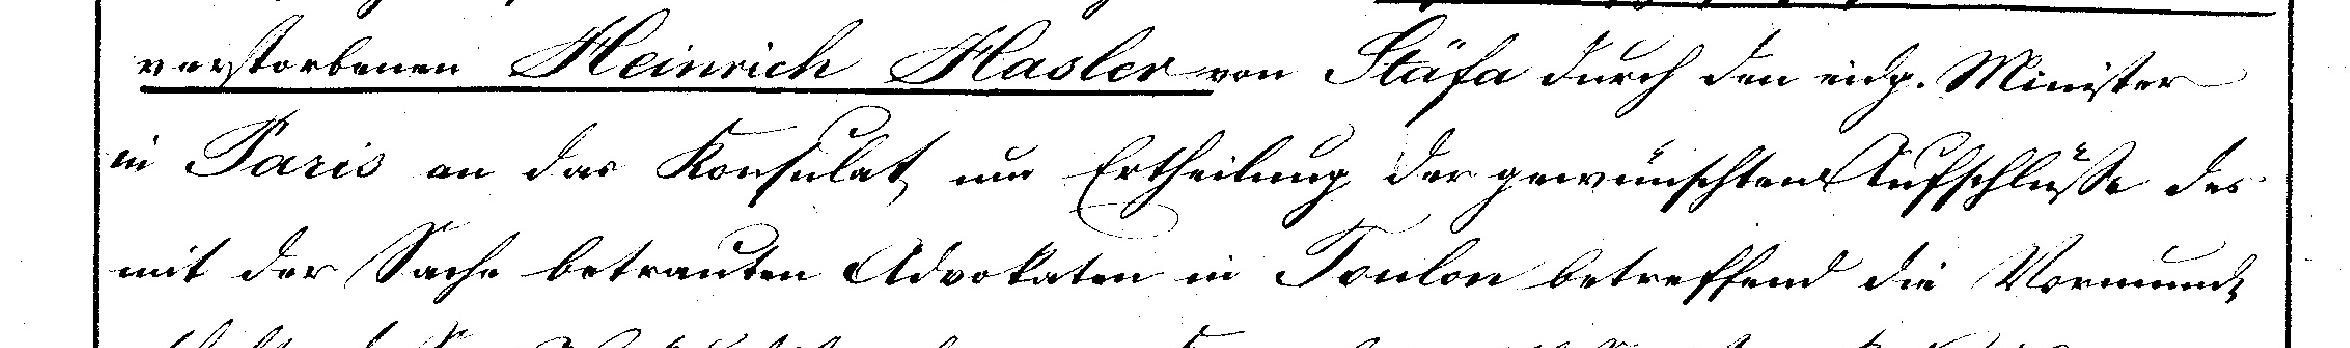 verstorbenen Heinrich Hasler von Stäfa durch den eidg. Minister
in Paris an das Konsulat, um Ertheilung der gewünschten Aufschlüsse des
mit der Sache betrauten Advokaten in Toulon betreffend die Vormund-